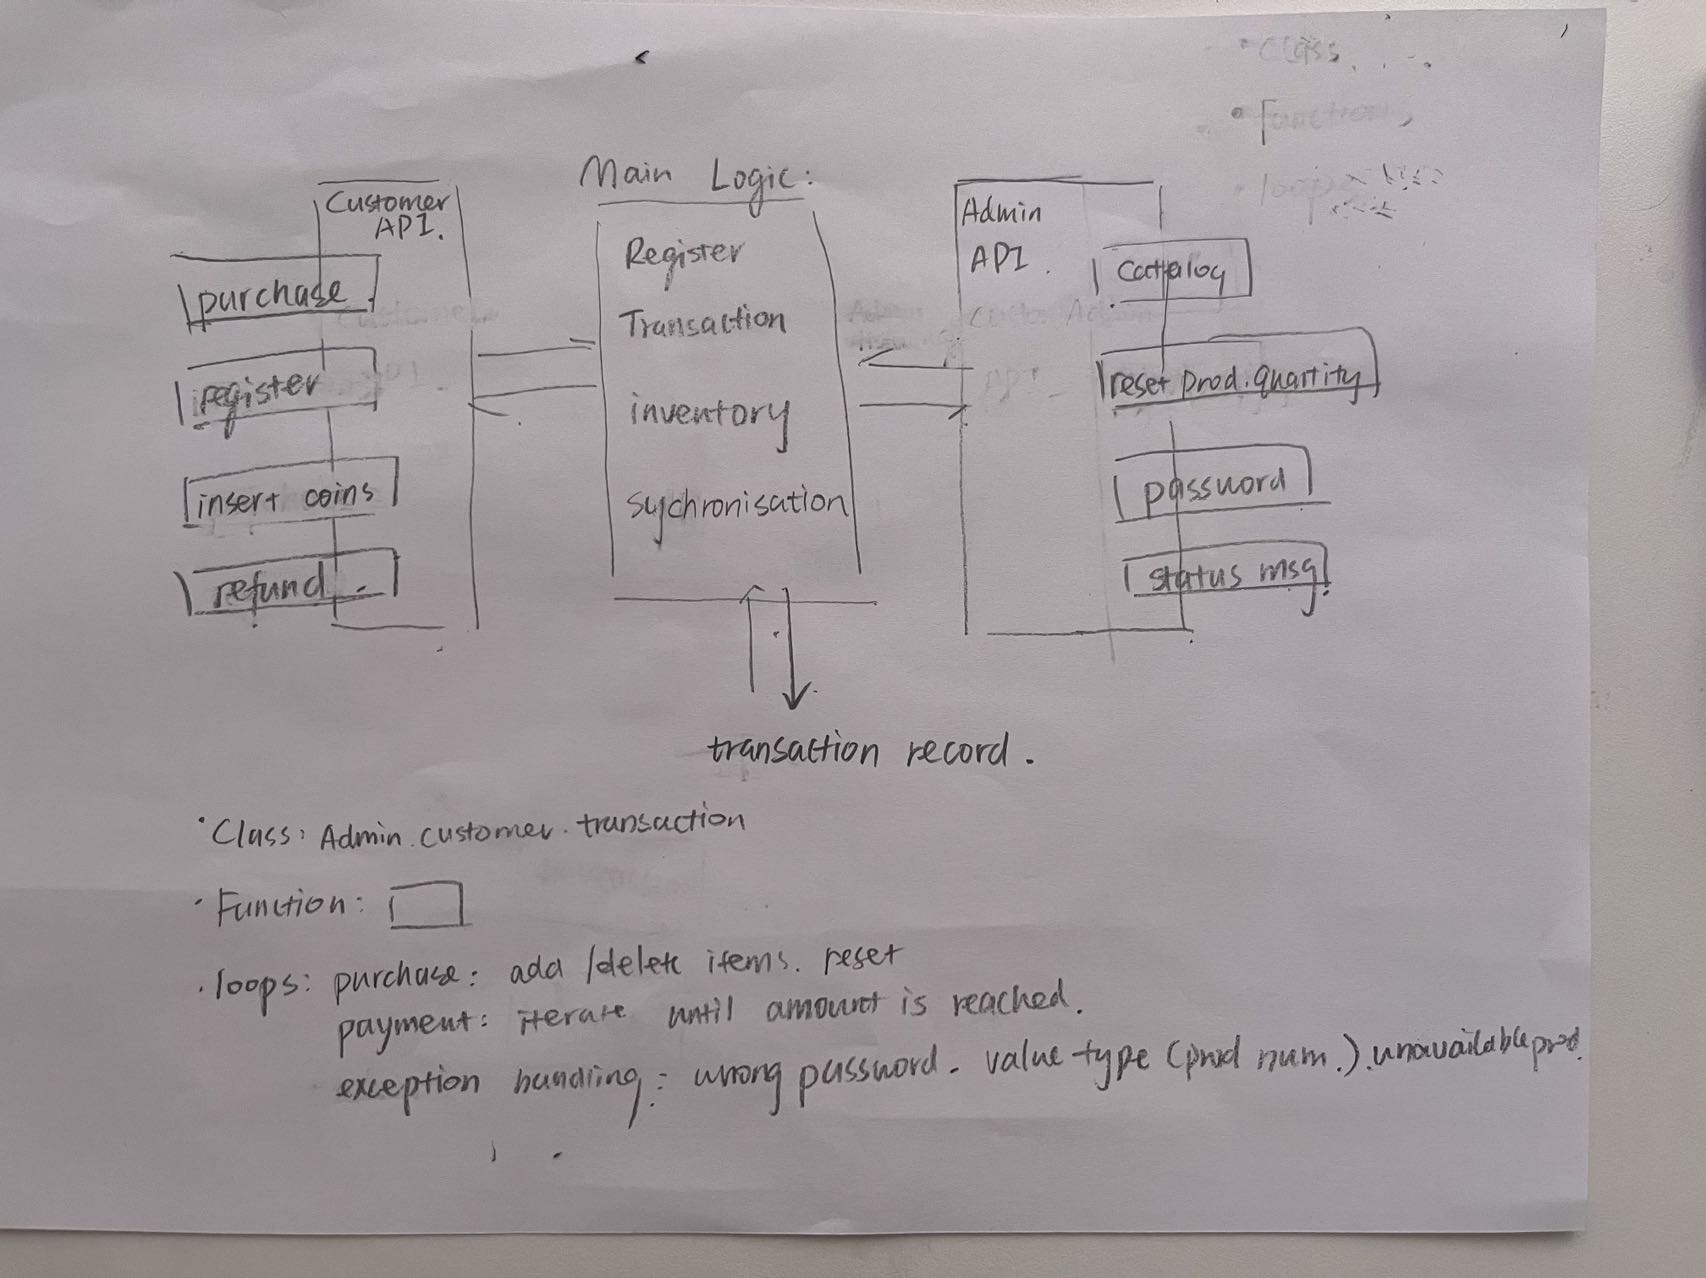 Main Logic:
Customer
API.
purchase.
register
insert coins
refund.
Register
Transaction
inventory
sychronisation
Admin
API.
Catalog
reset prod. quantity
password
status msg.
transaction record.
· Class: Admin. customer. transaction
· Function:
· loops: purchase: add / delete items. reset
payment: iterate until amount is reached.
exception handling: wrong password. value type (prod num.). unavailable prod.
· class
· function